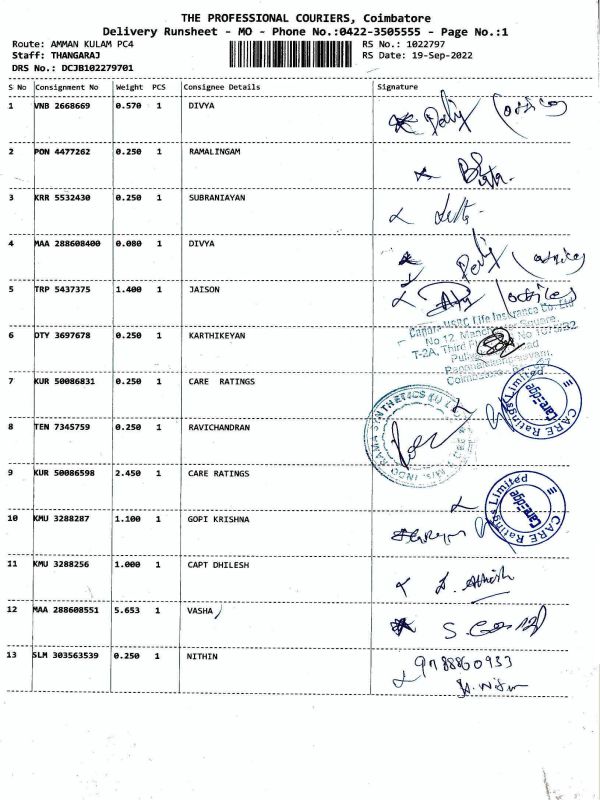 THE PROFESSIONAL COURIERS, Coimbatore
Delivery Runsheet - MO - Phone No.:0422-3505555 - Page No.:1
Route: AMMAN KULAM PC4 RS No.: 1022797
Staff: THANGARAJ RS Date: 19-Sep-2022
DRS No.: DCJB102279701
S No Consignment No Weight PCS Consignee Details Signature
1 VNB 2668669 0.570 1 DIVYA
2 PON 4477262 0.250 1 RAMALINGAM
3 KRR 5532430 0.250 1 SUBRANIAYAN
4 MAA 288608400 0.080 1 DIVYA
5 TRP 5437375 1.400 1 JAISON
Canara HSBC Life Insurance Co. Ltd
6 DTY 3697678 0.250 1 KARTHIKEYAN
7 KUR 50086831 0.250 1 CARE RATINGS
CARE Ratings Limited
CareEdge
8 TEN 7345759 0.250 1 RAVICHANDRAN
9 KUR 50086598 2.450 1 CARE RATINGS
CARE Ratings Limited
CareEdge
10 KMU 3288287 1.100 1 GOPI KRISHNA
11 KMU 3288256 1.000 1 CAPT DHILESH
12 MAA 288608551 5.653 1 VASHA
13 SLM 303563539 0.250 1 NITHIN